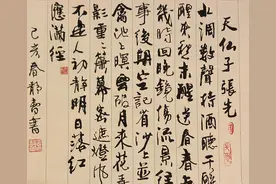 天仙子張先
水調數聲持酒聽午醉
醒來愁未醒送春春去
幾時回臨晚鏡傷流景往
事後期空記省沙上並
禽池上暝雲破月來花弄
影重重簾幕密遮燈風
不定人初靜明日落紅
應滿徑
己亥春靜書